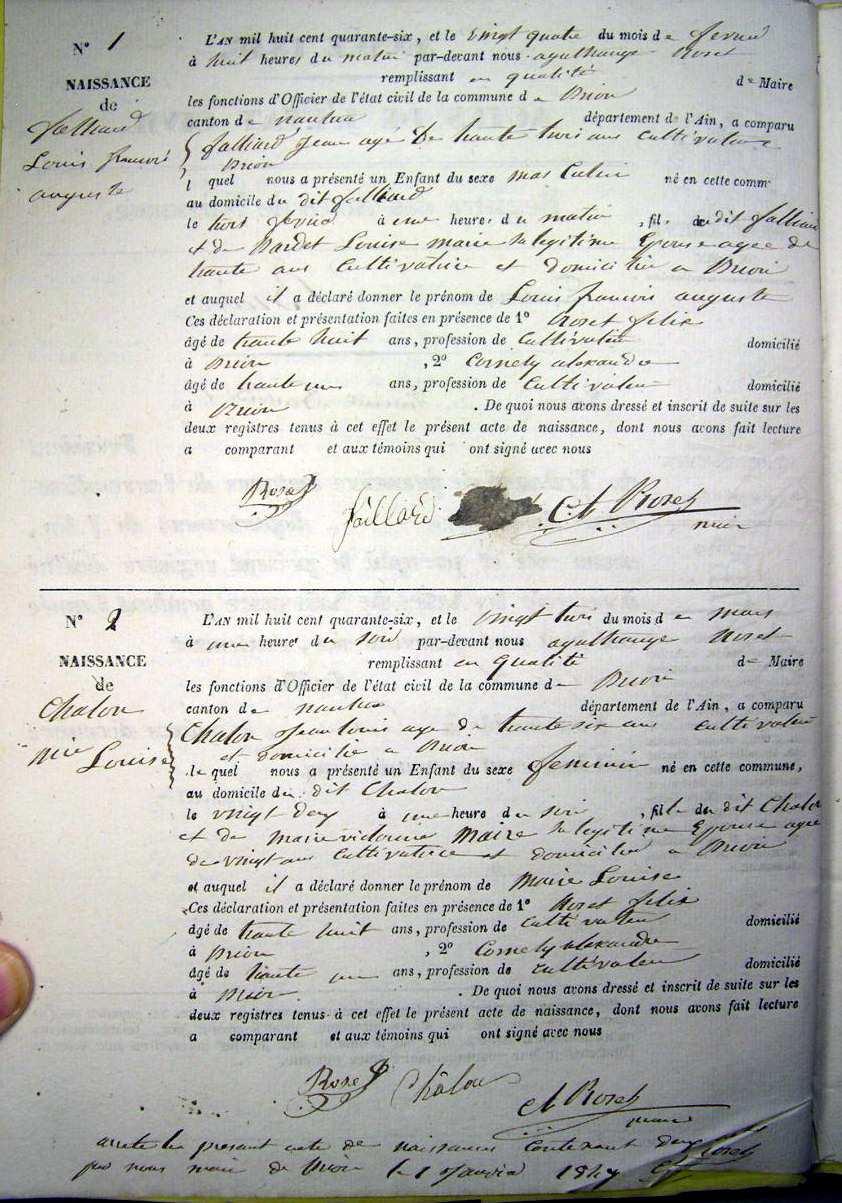 N° 1
NAISSANCE
de
falliard
Louis francois
auguste
L'AN mil huit cent quarante-six, et le vingt quatre du mois de
à huit heures du matin par-devant nous agathange Roset
remplissant en qualité de Maire
les fonctions d'Officier de l'état civil de la commune de Brion
canton de nantua département de l'Ain, a comparu
falliard Jean agé De trante trois ans Cultivateur
Brion
l quel nous a présenté un Enfant du sexe masculin né en cette comm
au domicile du dit falliard
le à une heures du matin , fils du dit falliard
et de Louise marie sa legitime Epouse agee de
trante ans Cultivatrice et domicilie a Brion
et auquel il a déclaré donner le prénom de Louis francois auguste
Ces déclaration et présentation faites en présence de 1° Roset felix
âgé de trante huit ans, profession de Cultivateur domicilié
à Brion , 2° Cornely alexandre
âgé de trante un ans, profession de Cultivateur domicilié
à Brion . De quoi nous avons dressé et inscrit de suite sur les
deux registres tenus à cet effet le présent acte de naissance, dont nous avons fait lecture
a comparant et aux témoins qui ont signé avec nous
Roset falliard Roset
maire
N° 2
NAISSANCE
de
Chalon
Mie Louise
L'AN mil huit cent quarante-six, et le vingt trois du mois de mars
à une heures du soir par-devant nous agathange Roset
remplissant en qualité de Maire
les fonctions d'Officier de l'état civil de la commune de Brion
canton de nantua département de l'Ain, a comparu
Chalon Jean louis age de trante six ans cultivateur
et domicilie a Brion
le quel nous a présenté un Enfant du sexe feminin né en cette commune,
au domicile du dit Chalon
le vingt deux à une heure du soir , fille du dit Chalon
et de marie MAIRE sa legitime Epouse agee
de vingt ans Cultivatrice et domicilie a Brion
et auquel il a déclaré donner le prénom de Marie Louise
Ces déclaration et présentation faites en présence de 1° Roset felix
âgé de trante huit ans, profession de cultivateur domicilié
à Brion , 2° Cornely alexandre
âgé de trante un ans, profession de cultivateur domicilié
à Brion . De quoi nous avons dressé et inscrit de suite sur les
deux registres tenus à cet effet le présent acte de naissance, dont nous avons fait lecture
a comparant et aux témoins qui ont signé avec nous
Roset Châlon Roset
maire
arrete le present acte de naissances Contenant deux
par nous maire de Brion le 1 Janvier 1847 Roset